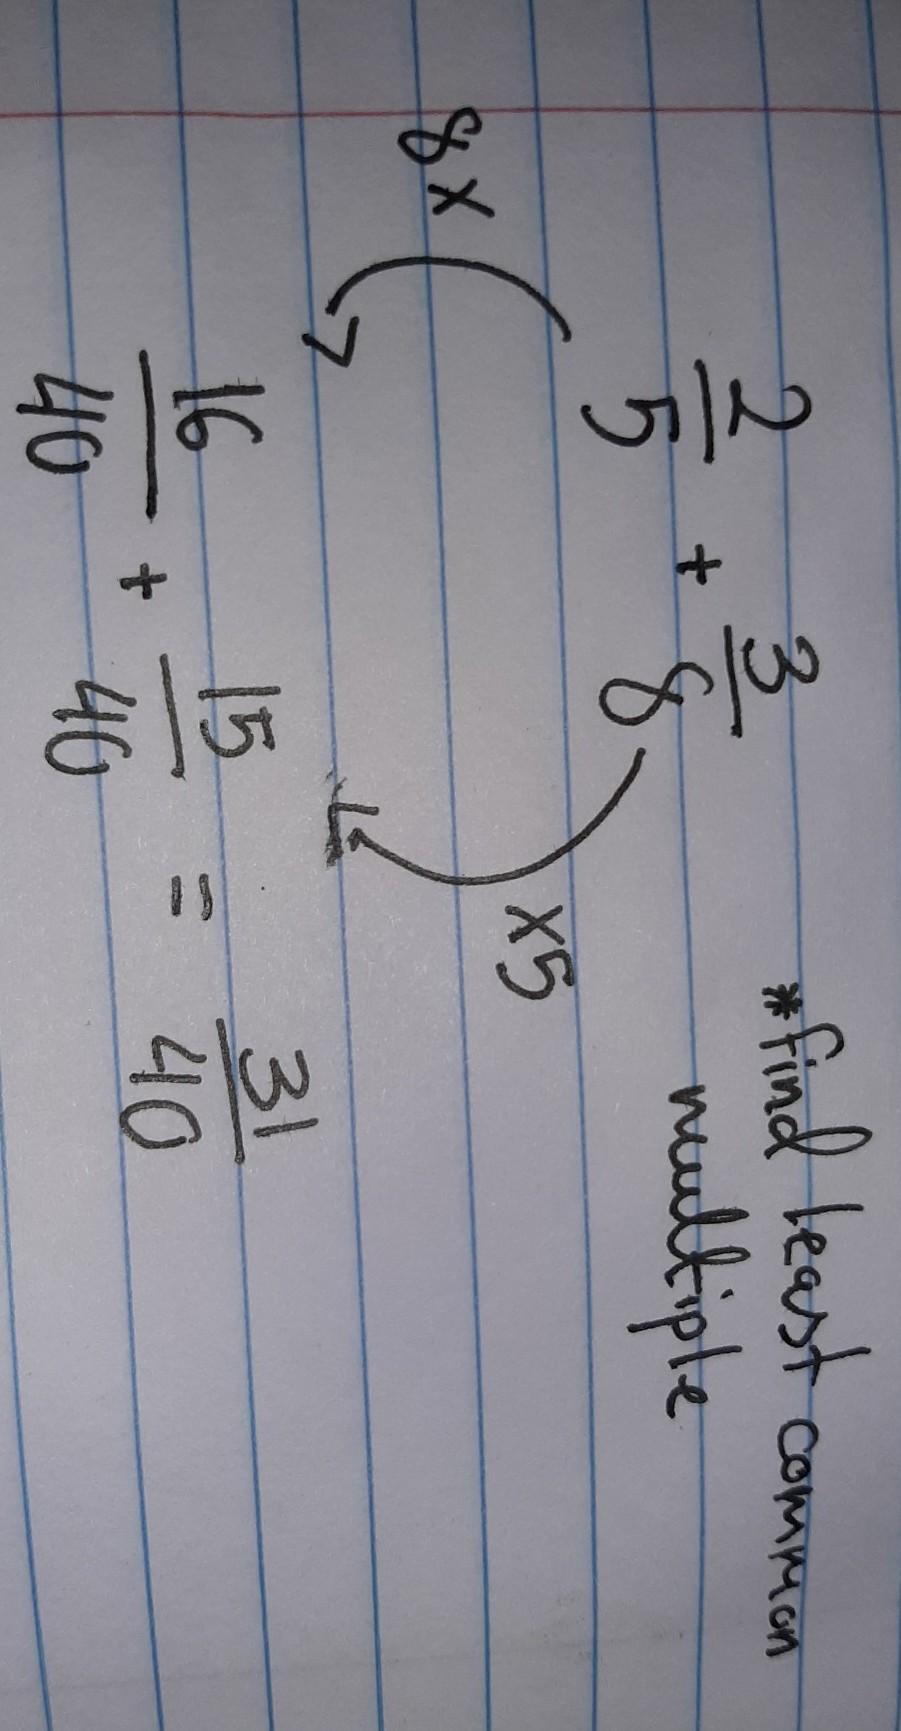 2/5 + 3/8 *find least common
multiple
8x x5
16/40 + 15/40 = 31/40